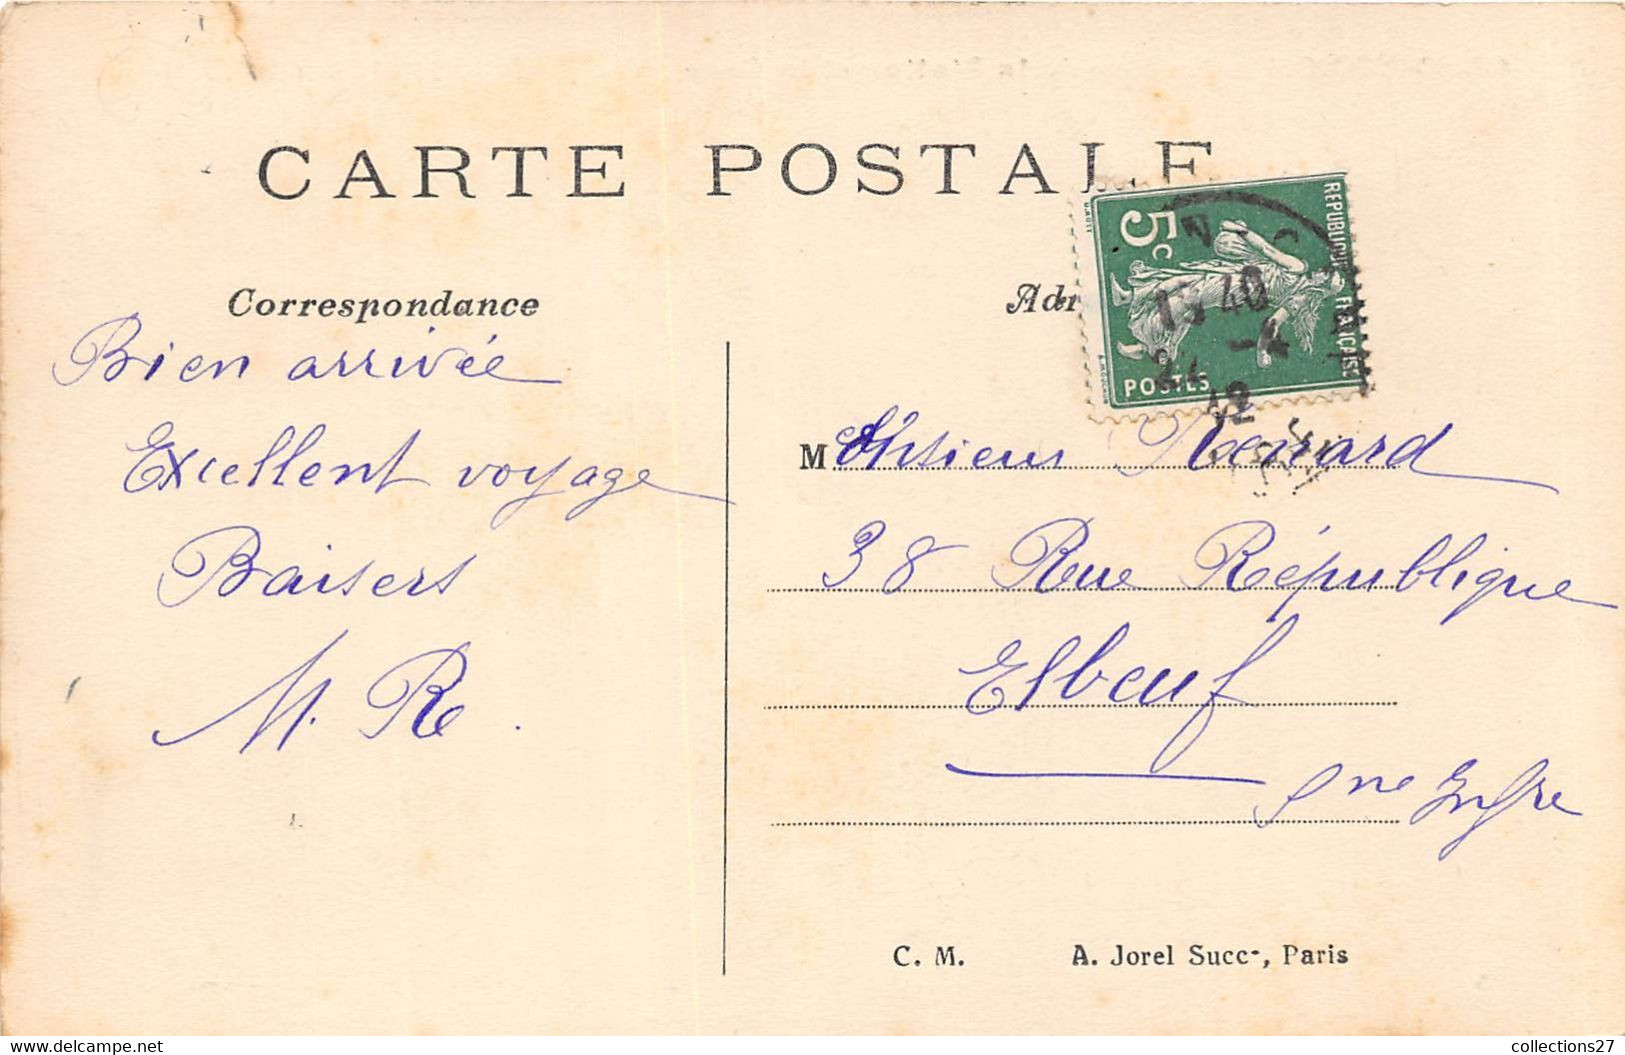 CARTE POSTALE
Correspondance
Adr
Bien arrivée
Excellent voyage
Baisers
M. R.
5c
REPUBLIQUE FRANCAISE
POSTES
40
-4
12
Monsieur Renard
38 Rue République
Elbeuf
Sne Infre
C. M. A. Jorel Succr, Paris
www.delcampe.net
collections27